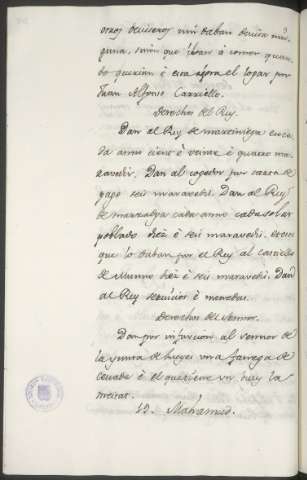 otros deviseros nin daban devisa nin-
guna, sinon que iban á comer quan-
do querian è era agora el logar por
Juan Alfonso Carriello.
Derechos del Rey.
Dan al Rey de martiniega en ca-
da anno ciento è veinte è quatro ma-
ravedis. Dan al cogedor por carta de
pago seis maravedis. Dan al Rey
de marzadga cada anno cada solar
poblado diez è seis maravedis.
que lo daban por el Rey al castiello
de Munno diez è seis maravedis. Dan
al Rey servicios è monedas.
Derechos del Sennor.
Dan por infurcion al sennor de
la yunta de bueyes una fanega de
cevada è el que tiene un buey la
meitat.
19. Mahamud.